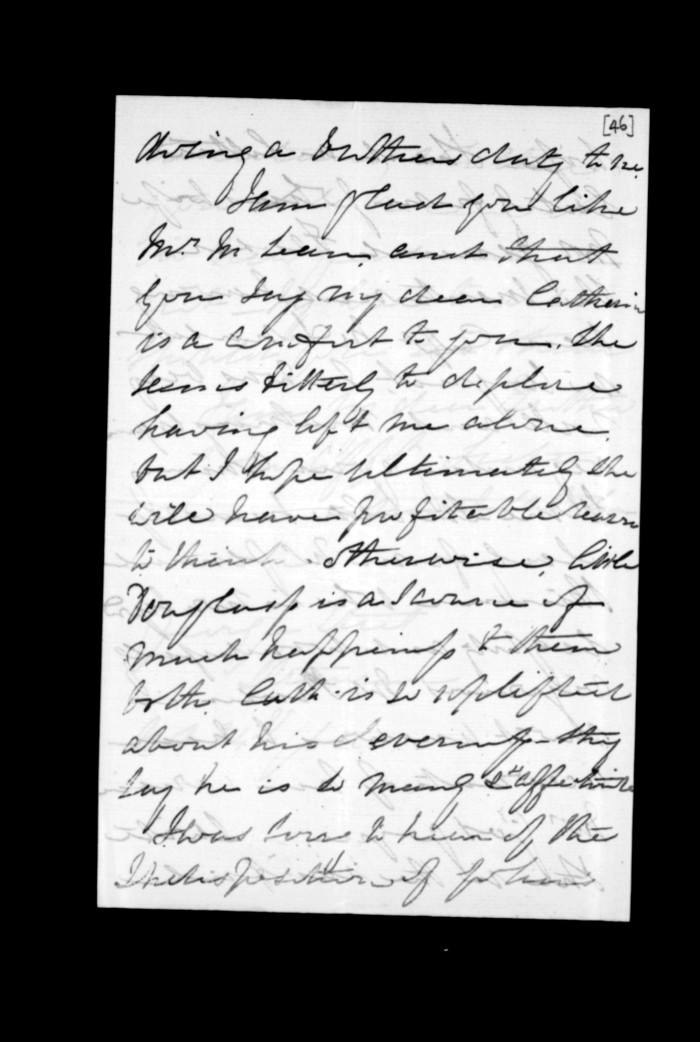 [46]
doing a brothers duty to me.
I am glad you like
Mr. McLean, and that
you say my dear Catherin
is a comfort to you. She
seems bitterly to deplore
having left me alone,
but I hope ultimately she
will have profitable reason
to think otherwise, little
Douglass is a source of
much happiness to them
both. Cath. is so uplifted
about his cleverness - they
say he is so manly & affectionate
I was sorry to hear of the
Indisposition of